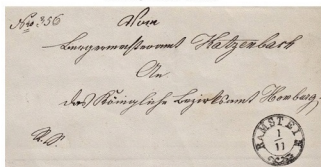 Nro. 356
Vom
Bürgermeisteramt Katzenbach
An
das Königliche Bezirksamt Homburg,
R.S.
RAMSTEIN
1
11